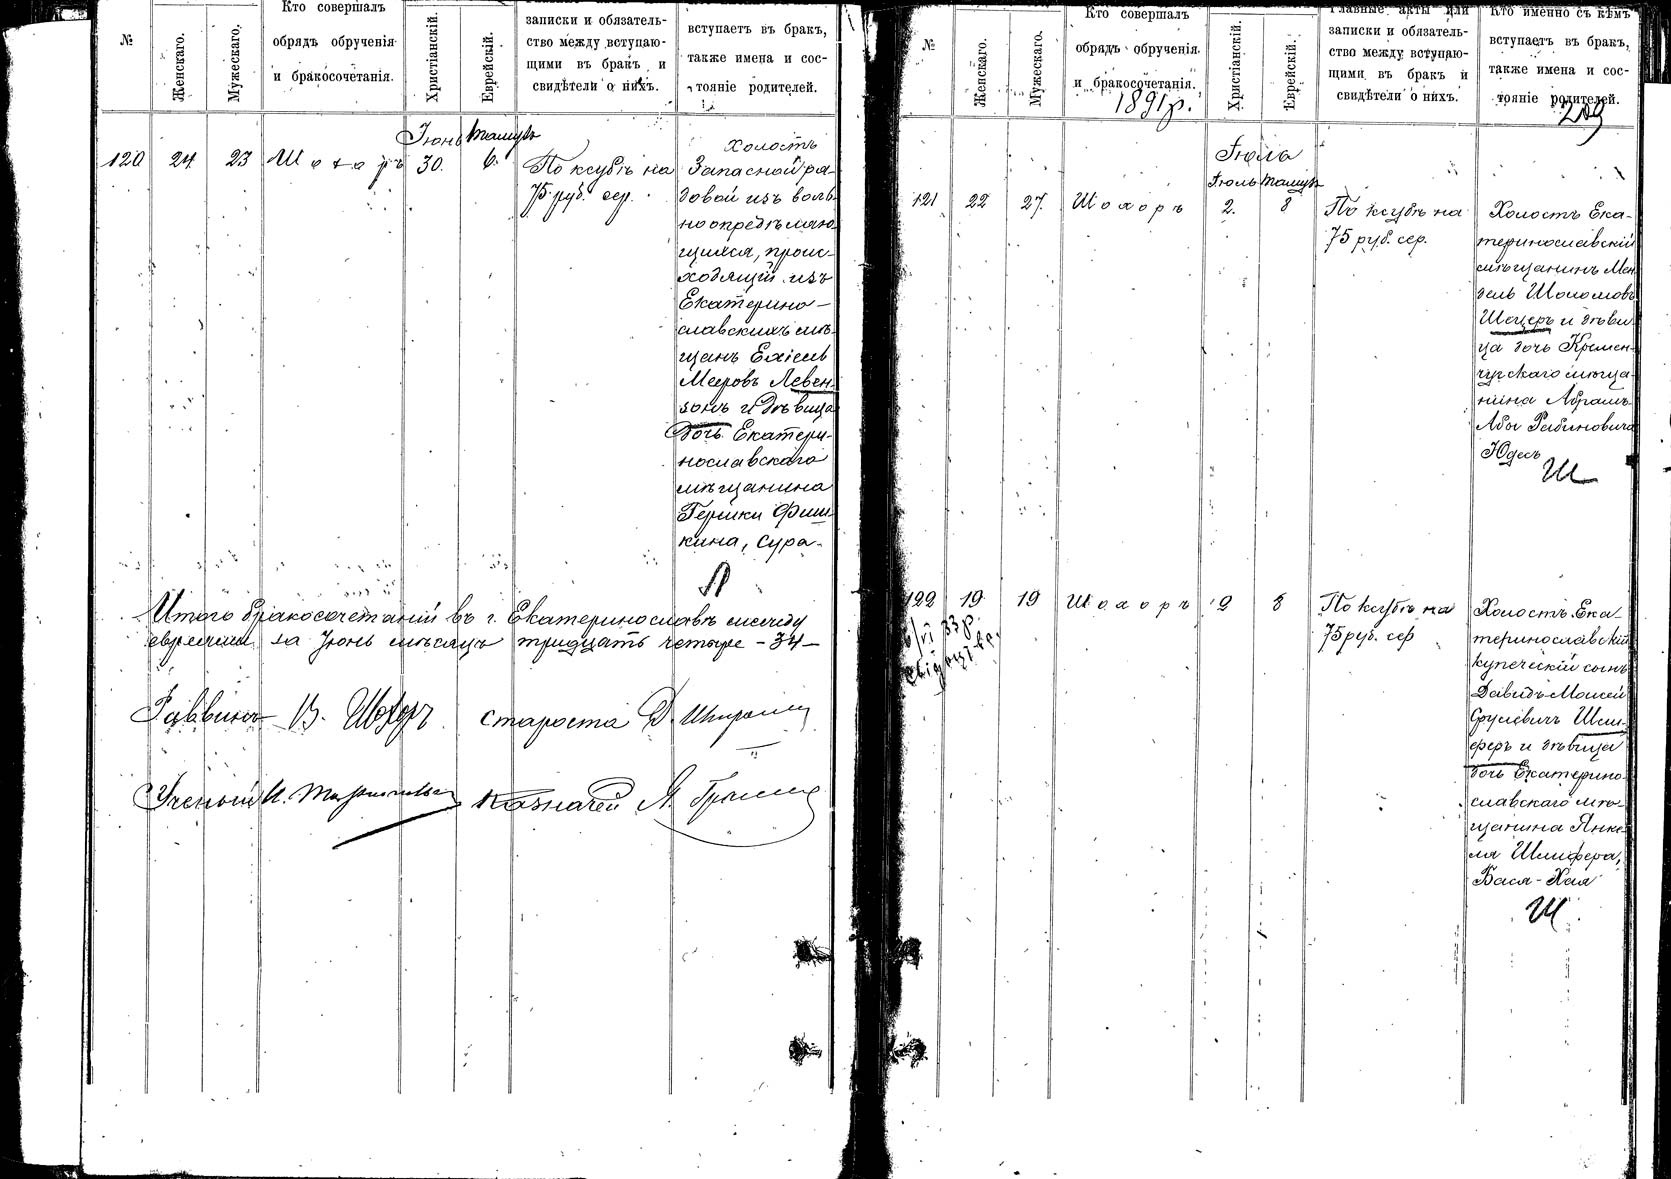 №
Женскаго.
Мужескаго.
Кто совершалъ
обрядъ обрученія
и бракосочетанія.
Христіанскій.
Еврейскій.
записки и обязатель-
ство между вступаю-
щими въ бракъ и
свидѣтели о нихъ.
вступаетъ въ бракъ,
также имена и сос-
тояніе родителей.
Іюнь Тамузъ
120 24 23 Шохоръ 30. 6.
По ксубѣ на
75 руб. сер.
холостъ
Запасной ря-
довой изъ воль-
ноопредѣляю-
щихся, проис-
ходящій изъ
Екатерино-
славскихъ мѣ-
щанъ Ехіель
Мееровъ Левен-
зонъ и дѣвица
дочь Екатери-
нославскаго
мѣщанина
Гершки Фиш-
кина, Сура.
Л
Итого бракосочетаній въ г. Екатеринославѣ между
евреями за Іюнь мѣсяцъ тридцать четыре - 34 -
Раввинъ В. Шохоръ староста Д.
Ученый И. Казначей Я.
№
Женскаго.
Мужескаго.
Кто совершалъ
обрядъ обрученія
и бракосочетанія.
1891 р.
Христіанскій.
Еврейскій.
Главные акты или
записки и обязатель-
ство между вступаю-
щими въ бракъ и
свидѣтели о нихъ.
Кто именно съ кѣмъ
вступаетъ въ бракъ,
также имена и сос-
тояніе родителей.
209
Іюль
Іюль Тамузъ
121 22 27. Шохоръ 2. 8
По ксубѣ на
75 руб. сер.
Холостъ Ека-
теринославскій
мѣщанинъ Мен-
дель Шоломовъ
Шецеръ и дѣви-
ца дочь Кремен-
чугскаго мѣща-
нина Абрамъ-
Абы Рабиновича
Юдесъ
Ш
122 19 19 Шохоръ 2 8
6/VI 33 р.
По ксубѣ на
75 руб. сер
Холостъ Ека-
теринославскій
купеческій сынъ
Давидъ-Моисей
Срулевичъ Шли-
феръ и дѣвица
дочь Екатерино-
славскаго мѣ-
щанина Янке-
ля Шлифера,
Бася-Хая
Ш